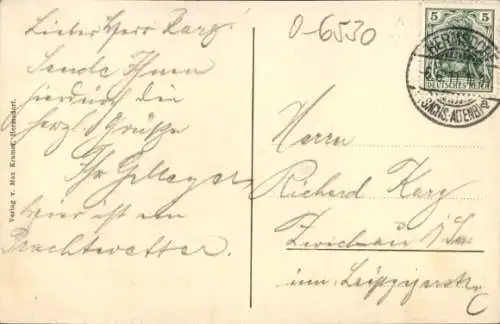 Lieber Herr Karg!
Sende Ihnen
hierdurch die
herzl. Grüsse
Ihr
hier ist ein
Prachtwetter.
O-6530
5 5
DEUTSCHES REICH
HERMSDORF
SACHS. ALTENB.
Herrn
Richard Karg
Zwickau i/Sa
inn. Leipzigerstr.
Verlag v. Max Kramer, Hermsdorf.